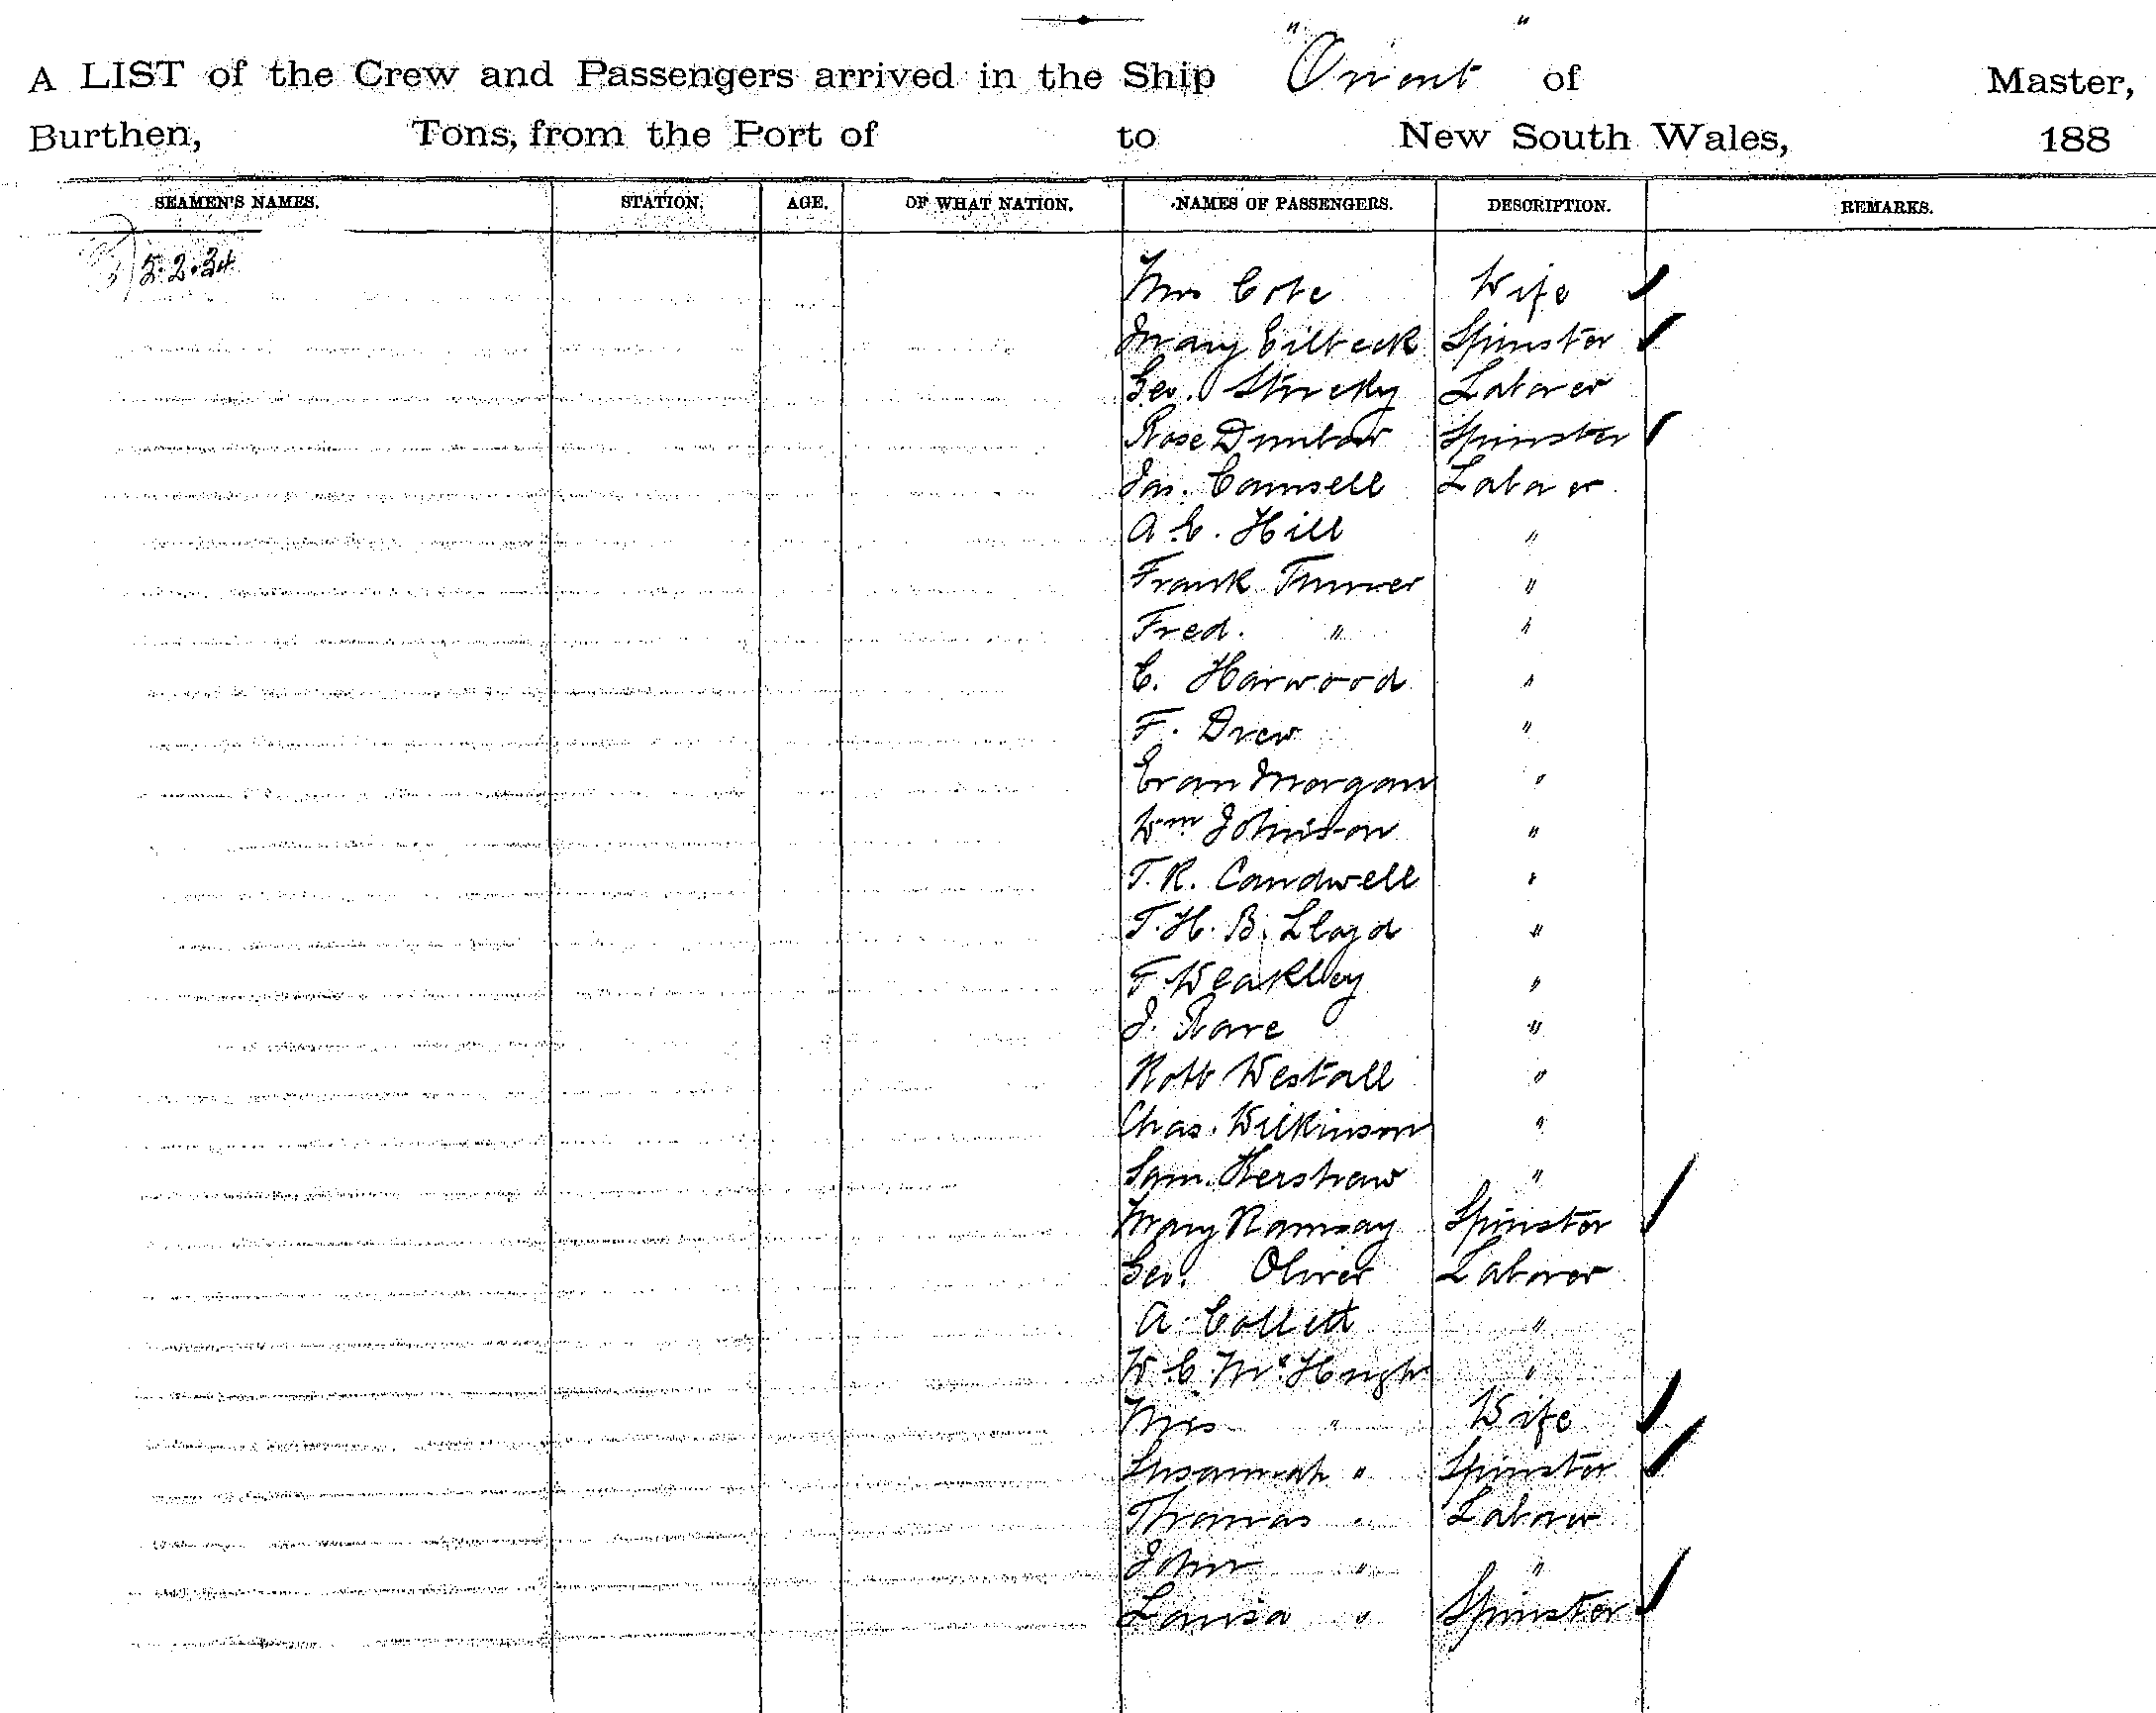 A LIST of the Crew and Passengers arrived in the Ship "Orient" of Master,
Burthen, Tons, from the Port of to New South Wales, 188
SEAMEN'S NAMES. STATION. AGE. OF WHAT NATION. NAMES OF PASSENGERS. DESCRIPTION. REMARKS.
5.2.34
Mrs Cote Wife ✓
Mary Cilbeck Spinster ✓
Geo. Laborer
Rose Dunbar Spinster ✓
Jas. Camsell Laborer
A. C. Hill "
Frank Turner "
Fred. " "
C. Harwood "
F. Drew "
Evan Morgan "
Wm Johnison "
T. R. Candwell "
T. H. B. Lloyd "
F. Weakley "
J. Rare "
Robt Westall "
Chas. Wilkinson "
Sam. Kershaw "
Mary Ramsay Spinster ✓
Geo. Oliver Laborer
A. Collett "
W. C. McHugh "
Mrs " Wife ✓
Susannah " Spinster ✓
Thomas " Laborer
John " "
Louisa " Spinster ✓